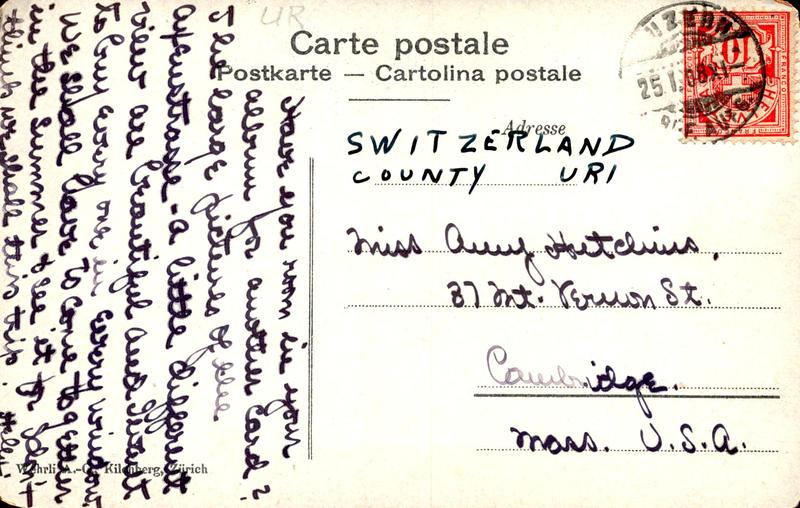 UR
Carte postale
Postkarte — Cartolina postale
Adresse
SWITZERLAND
COUNTY URI
Miss Amy Hutchins,
37 Mt. Vernon St.
Cambridge.
Mass. U.S.A.
Have you room in your
album for another card?
The large pictures of the
a little different
view are beautiful and
to buy every one in every window.
We shall have to come together
in the summer & see it for I don't
think we shall this trip.
Wehrli A.-G., Kilchberg, Zürich
LUZERN
25.I.
10